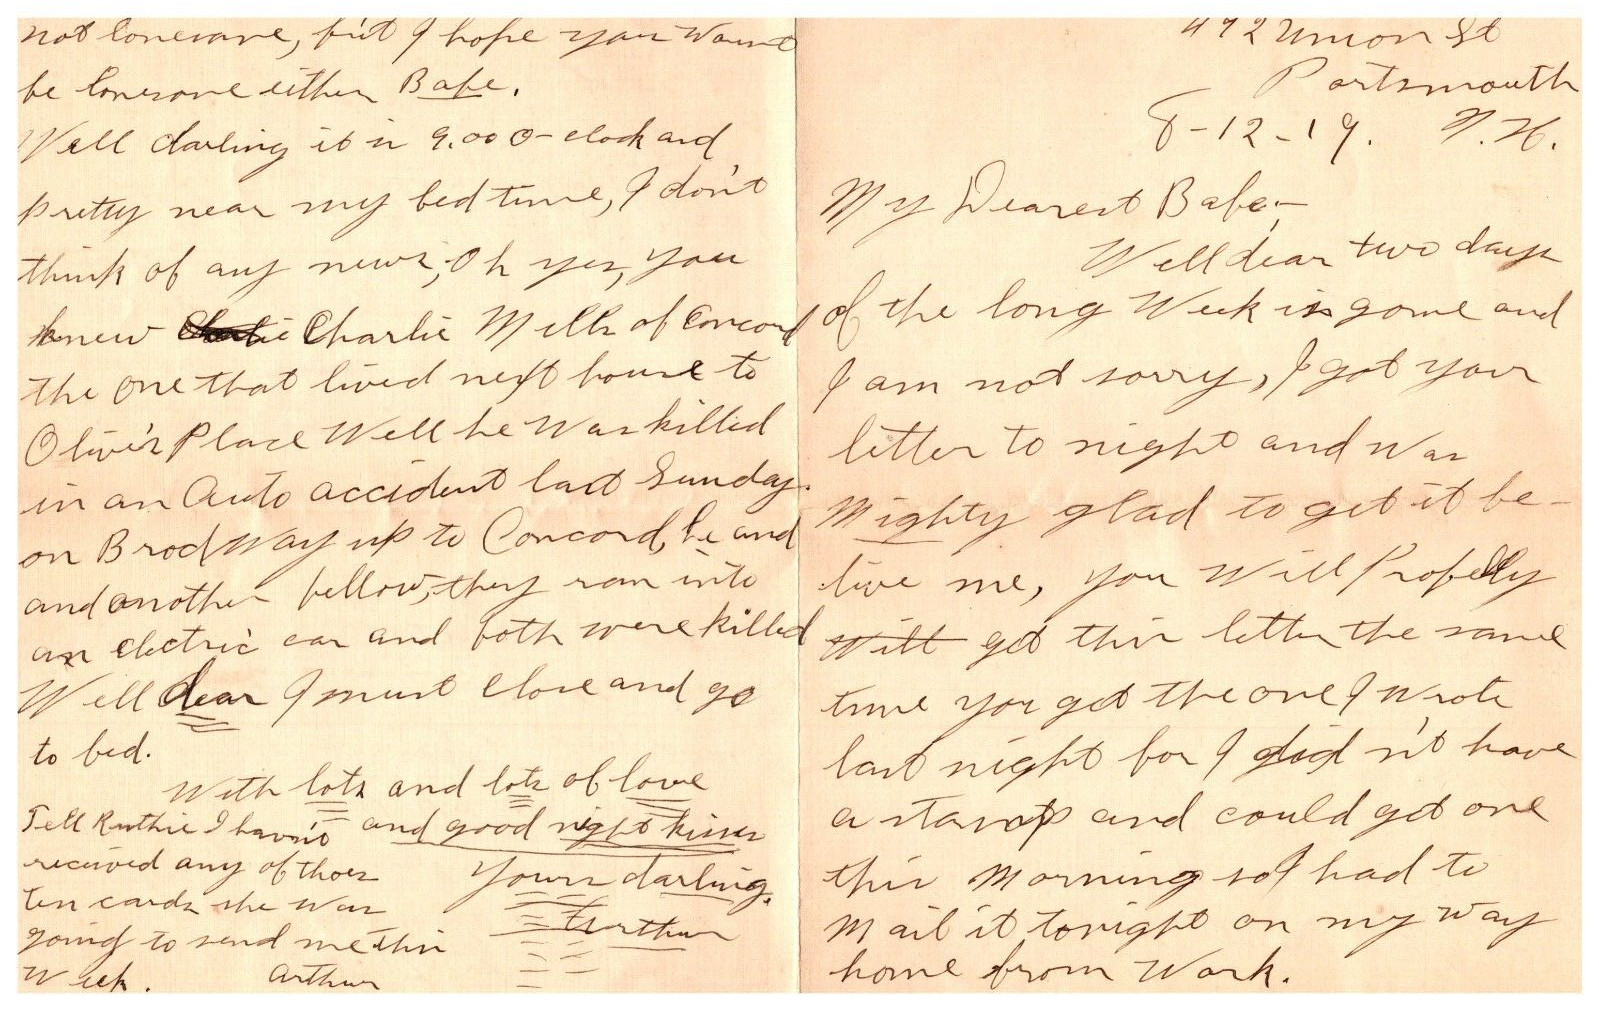 492 Union St
Portsmouth
8-12-19. N.H.
My Dearest Babe;-
Well dear two days
of the long Week is gone and
I am not sorry, I got your
letter to night and was
Mighty glad to get it be-
live me, you Will Probelly
Will get this letter the same
time you get the one I wrote
last night for I did n't have
a stamp and could get one
this Morning so I had to
Mail it tonight on my way
home from Work.
not lonesome, but I hope you Wount
be lonesome either Babe.
Well darling it is 9.00 O-clock and
pretty near my bed time, I don't
think of any news, Oh yes, you
knew Charlie Mills of Concord
the one that lived next house to
Olive's Place Well he Was killed
in an Auto accident last Sunday.
on Brodway up to Concord, he and
and another fellow, they ran into
an electric car and both were killed
Well dear I must Close and go
to bed.
With lots and lots of love
and good night kisses
Yours darling,
Arthur
Tell Ruthie I havn't
received any of thoes
ten cards she was
going to send me this
Week. Arthur